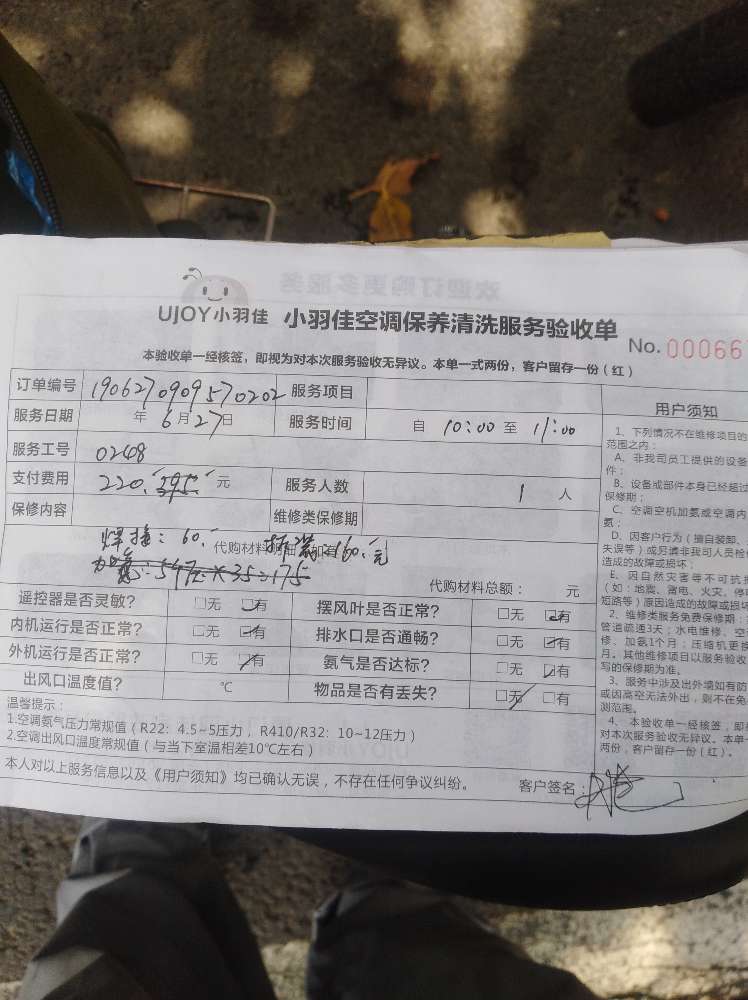 UJOY小羽佳 小羽佳空调保养清洗服务验收单
No. 00066
本验收单一经核签，即视为对本次服务验收无异议。本单一式两份，客户留存一份（红）
订单编号 1906270909570202 服务项目
服务日期 年 6 月 27 日 服务时间 自 10:00 至 11:00
服务工号 0248
支付费用 220. 395. 元 服务人数 1 人
保修内容 维修类保修期
焊接: 60. 代购材料明细 如有 拆装: 160.元
加氨: 5个压×35=175
代购材料总额： 元
遥控器是否灵敏? □无 □有 摆风叶是否正常? □无 □有
内机运行是否正常? □无 □有 排水口是否通畅? □无 □有
外机运行是否正常? □无 □有 氨气是否达标? □无 □有
出风口温度值? ℃ 物品是否有丢失? □无 □有
温馨提示：
1.空调氨气压力常规值（R22：4.5~5压力， R410/R32：10~12压力）
2.空调出风口温度常规值（与当下室温相差10℃左右）
本人对以上服务信息以及《用户须知》均已确认无误，不存在任何争议纠纷。 客户签名：
用户须知
1、下列情况不在维修项目的
范围之内：
A、非我司员工提供的设备
件；
B、设备或部件本身已经超过
保修期；
C、空调空机加氨或空调内
氨；
D、因客户行为（擅自装卸、
失误等）或另请非我司人员检
造成的故障或损坏；
E、因自然灾害等不可抗
（如：地震、雷电、火灾、停
短路等）原因造成的故障或损坏
2、维修类服务免费保修期：
管道疏通3天；水电维修、空
修、加氨1个月；压缩机更换
月。其他维修项目以服务验收
写的保修期为准。
3、服务中涉及出外墙如有防
或因高空无法外出，则不在免
测范围。
4、本验收单一经核签，即
对本次服务验收无异议。本单一
两份，客户留存一份（红）。